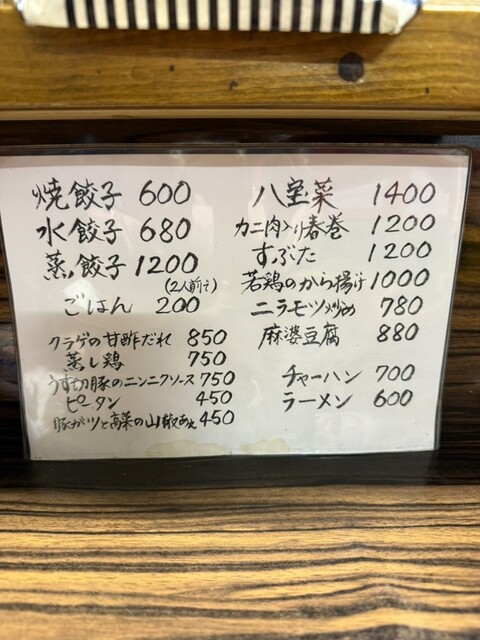 焼餃子 600
水餃子 680
蒸し餃子 1200
(2人前で)
ごはん 200
クラゲの甘酢だれ 850
蒸し鶏 750
うす切豚のニンニクソース 750
ピータン 450
豚ガツと高菜の山椒あえ 450
八宝菜 1400
カニ肉入り春巻 1200
すぶた 1200
若鶏のから揚げ 1000
ニラモツ炒め 780
麻婆豆腐 880
チャーハン 700
ラーメン 600